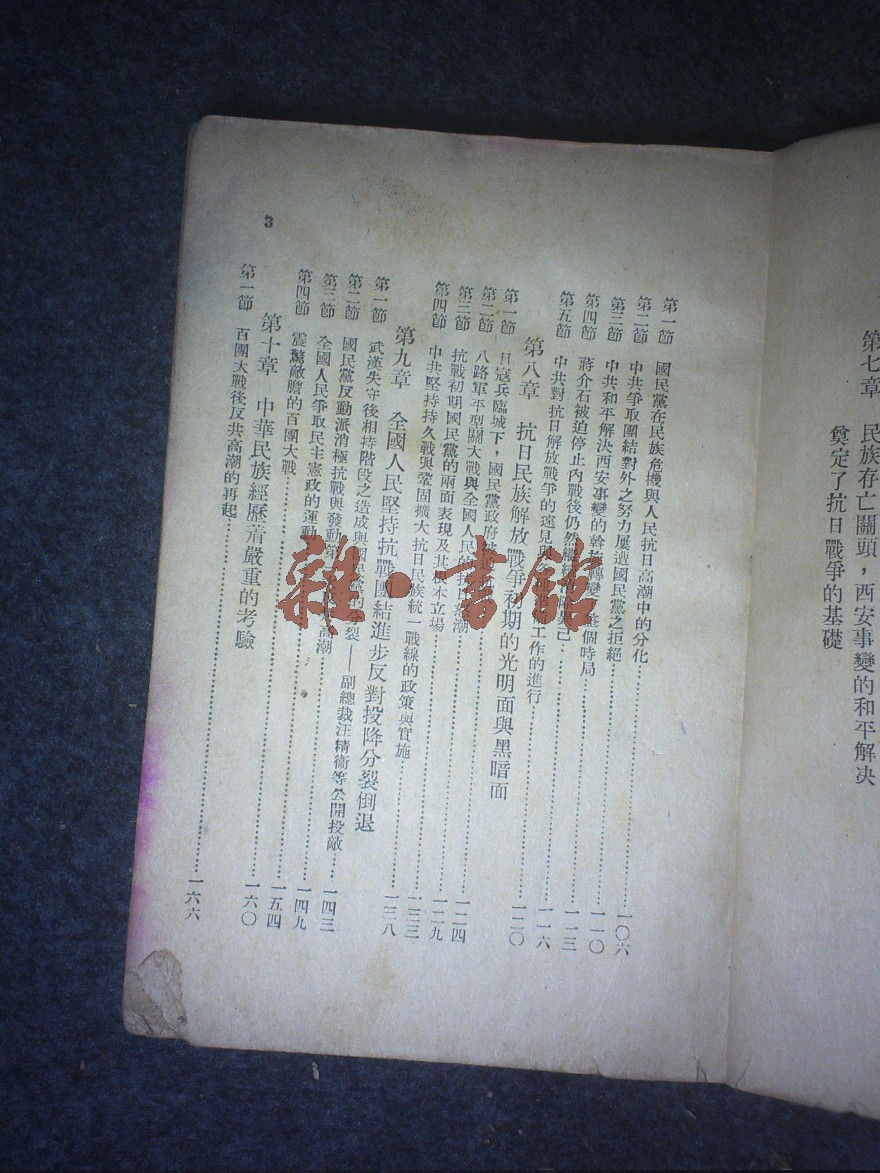 第七章　民族存亡關頭，西安事變的和平解决
奠定了抗日戰爭的基礎
第一節　國民黨在民族危機與人民抗日高潮中的分化…………一〇六
第二節　中共爭取團結對外之努力屢遭國民黨之拒絕…………一一〇
第三節　中共和平解决西安事變的幹旋轉變　整個時局…………一一三
第四節　蔣介石被迫停止內戰後仍然繼續　已…………一一六
第五節　中共對抗日解放戰爭的遠見與　工作的進行…………一二〇
第八章　抗日民族解放戰爭初期的光明面與黑暗面
第一節　日寇兵臨城下，國民黨政府…………一二四
第二節　八路軍平型關大戰與全國人民的抗日　潮…………一二九
第三節　抗戰初期國民黨的兩面表現及其根本立場…………一三三
第四節　中共堅持持久戰與鞏固擴大抗日民族統一戰線的政策與實施…………一三八
第九章　全國人民堅持抗戰團結進步反對投降分裂倒退
第一節　武漢失守後相持階段之造成與國民黨的分裂——副總裁汪精衛等公開投敵…………一四三
第二節　國民黨反動派消極抗戰與發動第　高潮…………一四九
第三節　全國人民爭取民主憲政的運動…………一五四
第四節　震驚敵膽的百團大戰…………一六〇
第十章　中華民族經歷着嚴重的考驗
第一節　百團大戰後反共高潮的再起…………一六六
3
雜·書館